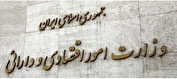 جمهوری اسلامی ایران
وزارت امور اقتصادی و دارائی